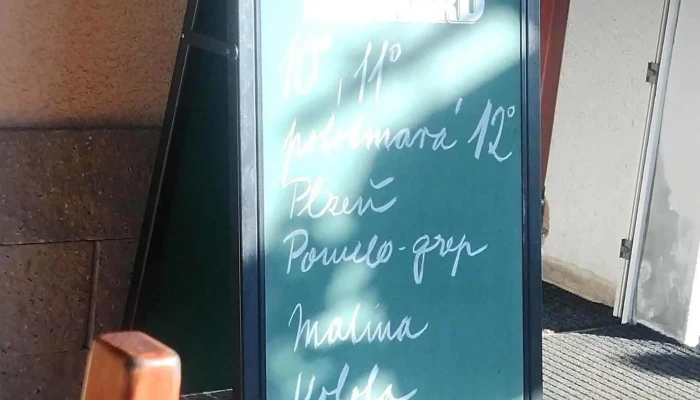 10°, 11°
polotmavá 12°
Plzeň
Pomelo-grep
Malina
Kofola